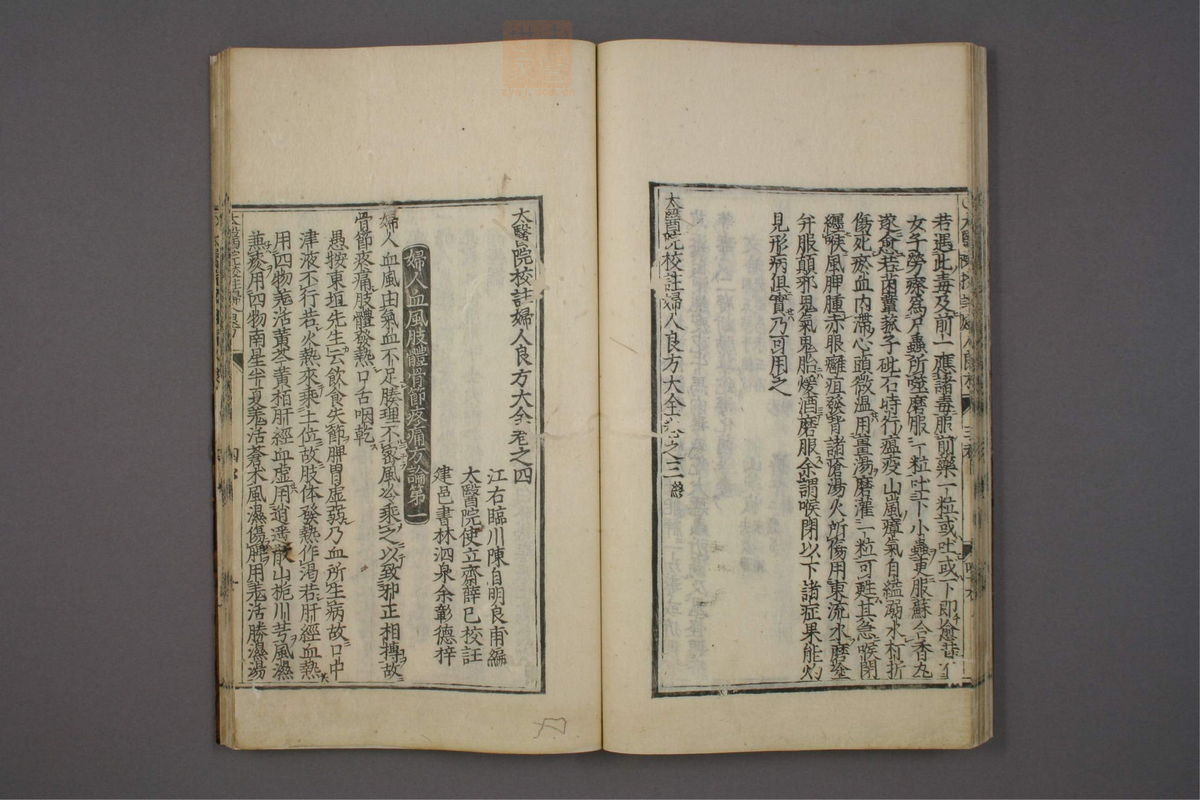 若遇此毒及前一應諸毒服前藥一粒或吐或下即愈昔一
女子勞瘵為尸蟲所噬磨服一粒吐下小蟲更服蘇合香丸
遂愈若菌蕈菰子砒石時行瘟疫山嵐瘴氣自縊溺水打折
傷死瘀血內滯心頭微溫用薑湯磨灌一粒可甦其急喉閉
纏喉風脾腫赤眼癰疽發背諸瘡湯火所傷用東流水磨塗
并服顛邪鬼氣鬼胎煖酒磨服余謂喉閉以下諸症果能灼
見形病俱實乃可用之
太醫院校註婦人良方大全卷之三 終
太醫院校註婦人良方大全卷之四
江右臨川陳自明良甫編
太醫院使立齋薛已校註
建邑書林泗泉余彰德梓
婦人血風肢體骨節疼痛方論第一
婦人血風由氣血不足腠理不密風冷乘之以致邪正相搏故
骨節疼痛肢體發熱口舌咽乾
愚按東垣先生云飲食失節脾胃虛弱乃血所生病故口中
津液不行若火熱來乘土位故肢体發熱作渴若肝經血熱
用四物羌活黃芩黃栢肝經血虛用逍遥散山梔川芎風濕
兼痰用四物南星半夏羌活蒼朮風濕傷脾用羌活勝濕湯